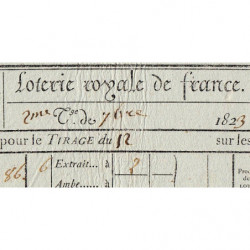 Loterie royale de france.
2me Tge de 7bre 1823
pour le TIRAGE du 12 sur les
86. 6 Extrait....à 2
Ambe......